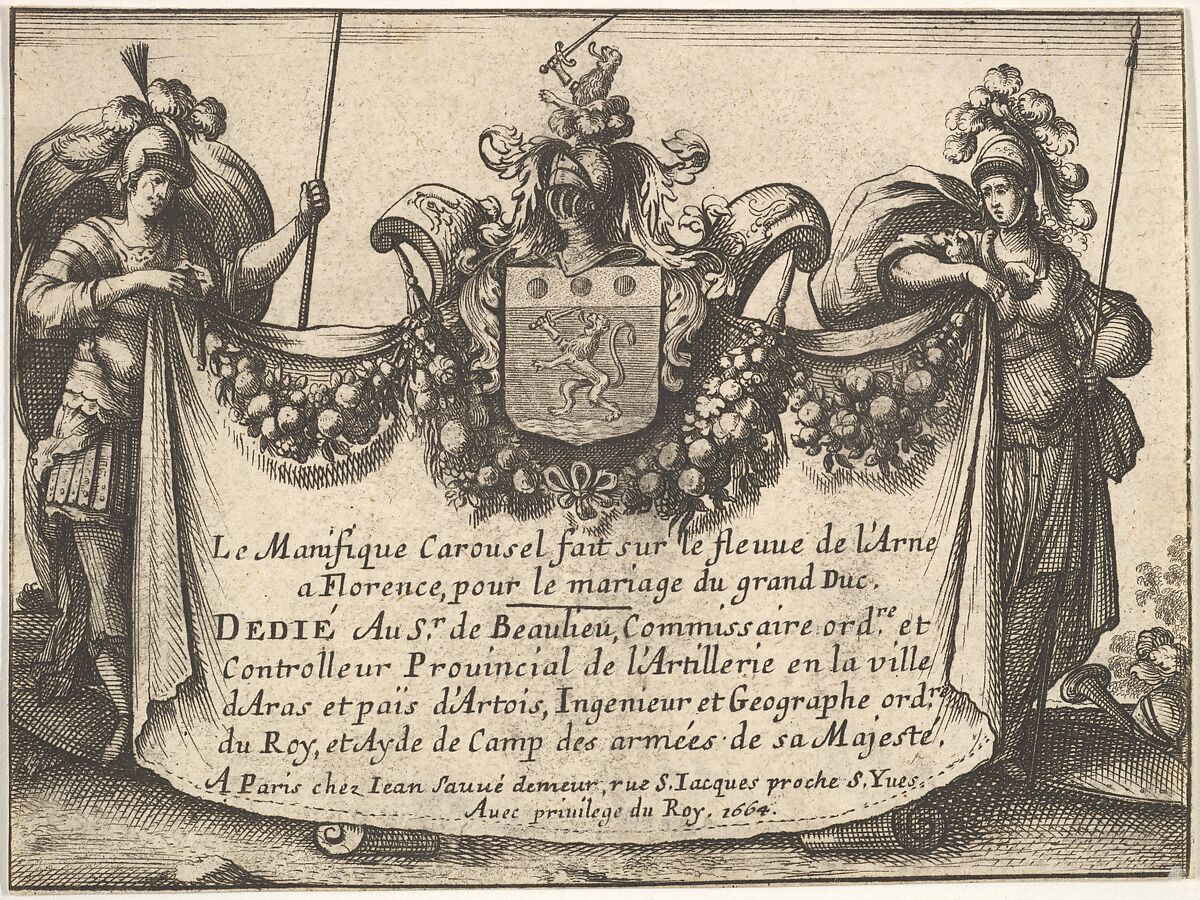 Le Manifique Carousel fait sur le fleuue de l'Arne
a Florence, pour le mariage du grand Duc.
DEDIÉ Au S.r de Beaulieu, Commissaire ord.re et
Controlleur Prouincial de l'Artillerie en la ville
d'Aras et païs d'Artois, Ingenieur et Geographe ord.re
du Roy, et Ayde de Camp des armées de sa Majesté.
A Paris chez Iean Sauué demeur, rue S. Iacques proche S. Yues.
Auec priuilege du Roy. 1664.